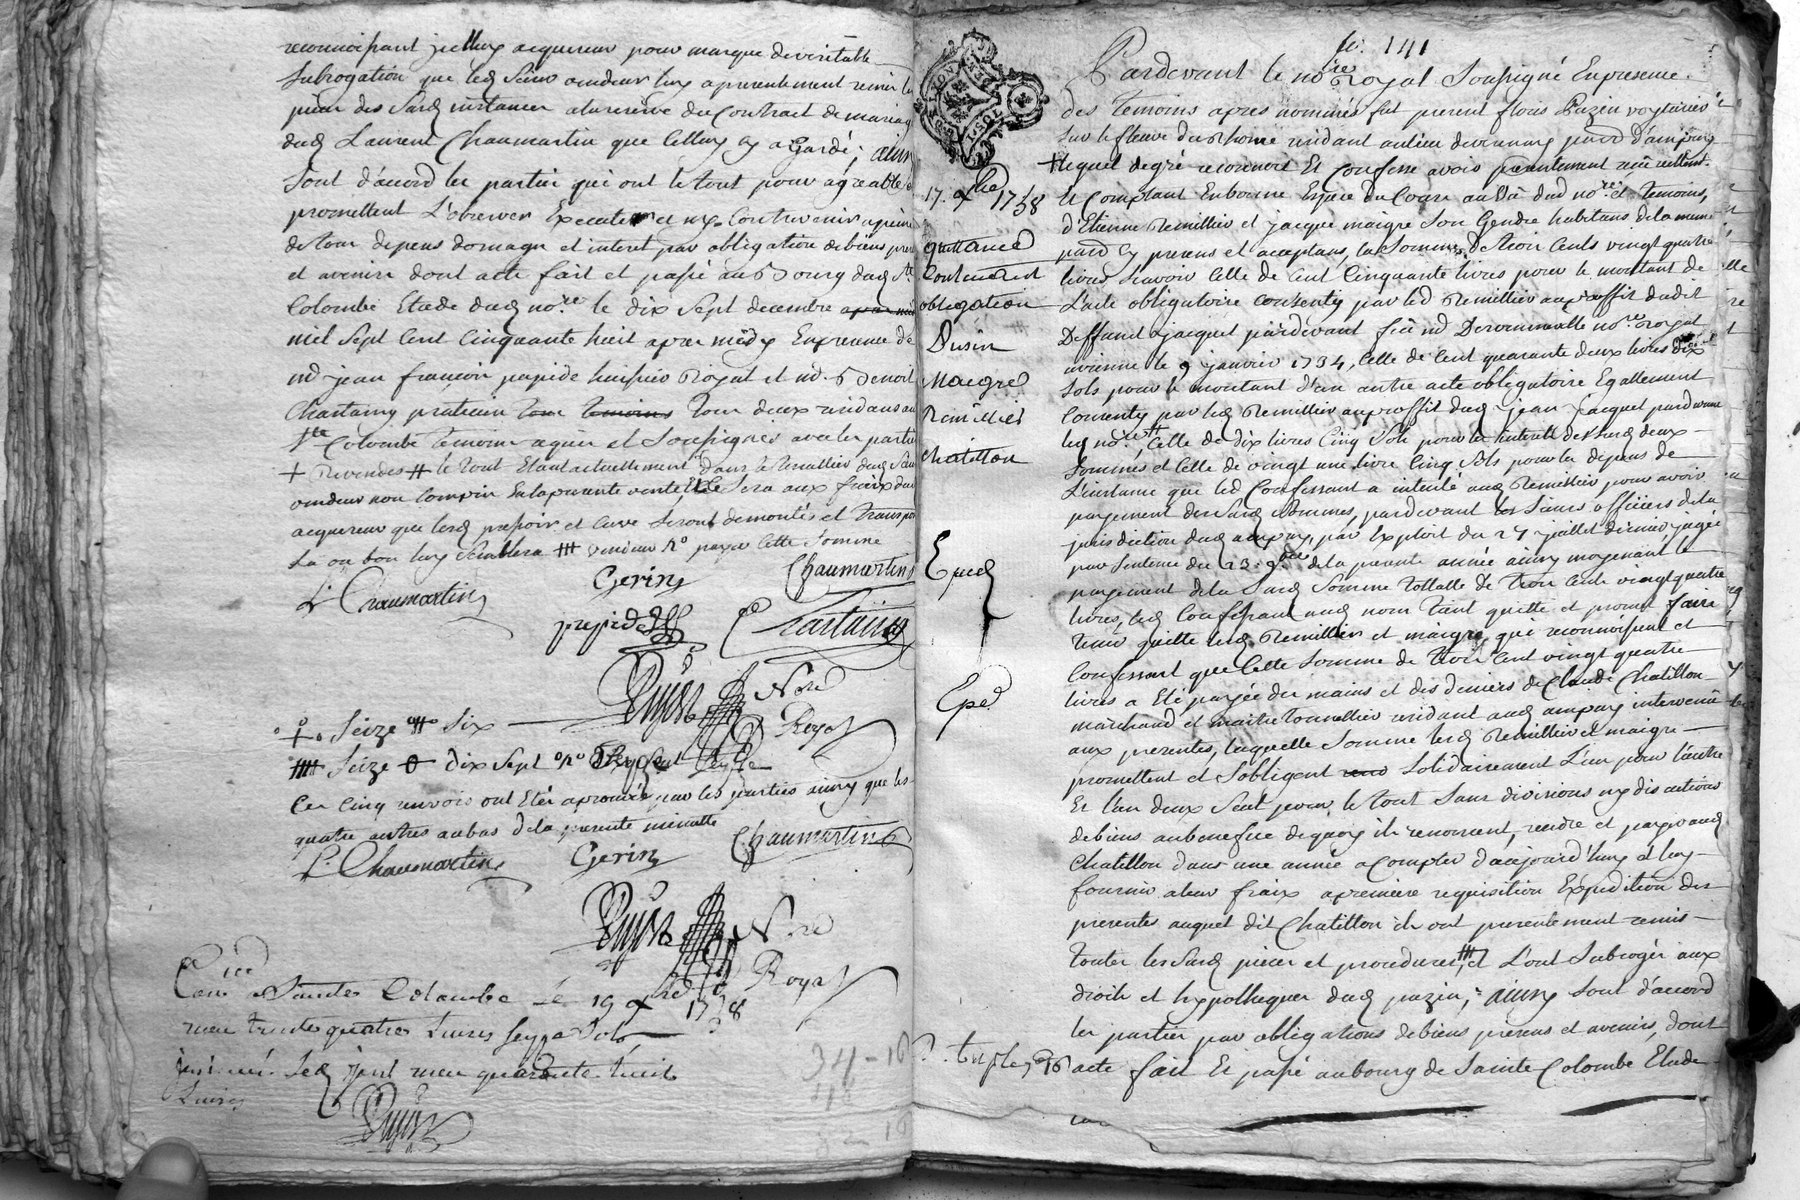 reconnoissant jcelluy acquereur pour marque de veritable
subrogation que led. Sieur vendeur luy a presentement remis les
pieces des Susd. instances a la reserve du Contrait de mariage
dud. Laurent Chaumartin que celluy cy a gardé; ainsy
sont d'accord les parties qui ont le tout pour agreable et
promettent L'observer Executer et ny Contrevenir a peine
de tous depens domages et interet par obligation de biens presens
et avenirs dont acte fait et passé au Bourg dud. Ste
Colombe Etude dud. nore. le dix Sept decembre apres mid
mil Sept Cent Cinquante huit apres midy En presence de
md jean francois papide huissier Royal et md. Benoit
Chastaing praticien tous temoins tous deux residans au
Ste Colombe temoins requis et Soussignés avec les parties
le tout Etant actuellement dans le tenallier dud. Sieur
vendeur non Compris En la presente vente, Et ce Sera aux fraix dud.
acquereur que lesd. pressoir et Cuve Seront demontés et transportés
La ou bon luy Semblera vendeur no. payer Cette Somme
L Chaumartin Gerin Chaumartin
papide Chastaing
Dujon Nore
Royal
Seize six
Seize dix Sept
Ces Cinq renvois ont Eté aprouvés par les parties ainsy que les
quatre autres au bas de la presente minutte
L Chaumartin Gerin Chaumartin
Dujon Nore
Royal
Conlé a Sainte Colombe Le 19 xbre 1758
receu trente quatre Livres Seize Sols
receu quarante huit
Livres
Dujon
34-16
48
82-16
fo. 141
LYON
17. xbre 1758
quittance
Contenant
obligation
Pusin
Maigre
Remillier
Chatillon
Exped
Exped
Pardevant le nore Royal Soussigné En presence
des temoins apres nommés fut present flori Pazin voyturier
Sur le fleuve du Rhone residant au lieu de Verenay parr. d'ampuy
lequel de gré a reconnu Et Confesse avoir presentement reçu reellement
et Comptant En bonne Espece du Cours au Vû dud. nore et temoins,
d'Etienne Remillier et jacque maigre Son Gendre habitans de la meme
parr. Cy presens et acceptans, la Somme de trois Cents vingt quatre
livres Scavoir Celle de Cent Cinquante livres pour le montant de
L'acte obligatoire Consenty par led. Remillier au proffit dudit
Deffunt jacquet pardevant feu md Deroinneville nore royal
a vienne le 9 janvier 1734, Celle de Cent quarante deux livres dix
Sols pour le montant d'un autre acte obligatoire Egallement
Consenty par led. Remillier au proffit dud. jean jacquet pardevant
led. nore Celle de dix livres Cinq Sols pour les interets desd. deux
Sommes et Celle de vingt une livre Cinq Sols pour les depens de
L'instance que led. Confessant a intenté aud. Remillier pour avoir
payement des Susd. Sommes, pardevant les Sieurs officiers de la
jurisdiction dud. ampuy, par Exploit du 27 juillet dernier, jugée
par Sentence du 23. 9bre de la presente année ainsy moyenant le
payement de la Susd. Somme totalle de trois Cents vingt quatre
livres, led. Confessant aud. nom tient quitte et promet faire
tenir quitte lesd. Remillier et maigre, qui reconnoissent et
Confessent que Cette Somme de trois Cent vingt quatre
livres a Eté payée des mains et des deniers de Claude Chatillon
marchand et maitre tonnellier residant aud. ampuy intervenu
aux presentes, laquelle Somme lesd. Remillier et maigre
promettent et S'obligent rend Solidairement L'un pour L'autre
Et L'un deux Seul pour le tout Sans division ny discutions
de biens au benefice dequoy ils renoncent, rendre et payer aud.
Chatillon dans une année a Compter d'aujourd'huy et luy
fournir a leur fraix a premiere requisition Expedition des
presentes auquel dit Chatillon ils ont presentement remis
toutes les Susd. pieces et procedures, et L'ont Subrogés aux
droits et hypotheques dud. pazin; ainsy Sont d'accord
les parties par obligations de biens presens et avenirs, dont
acte fait Et passé au bourg de Sainte Colombe Etude